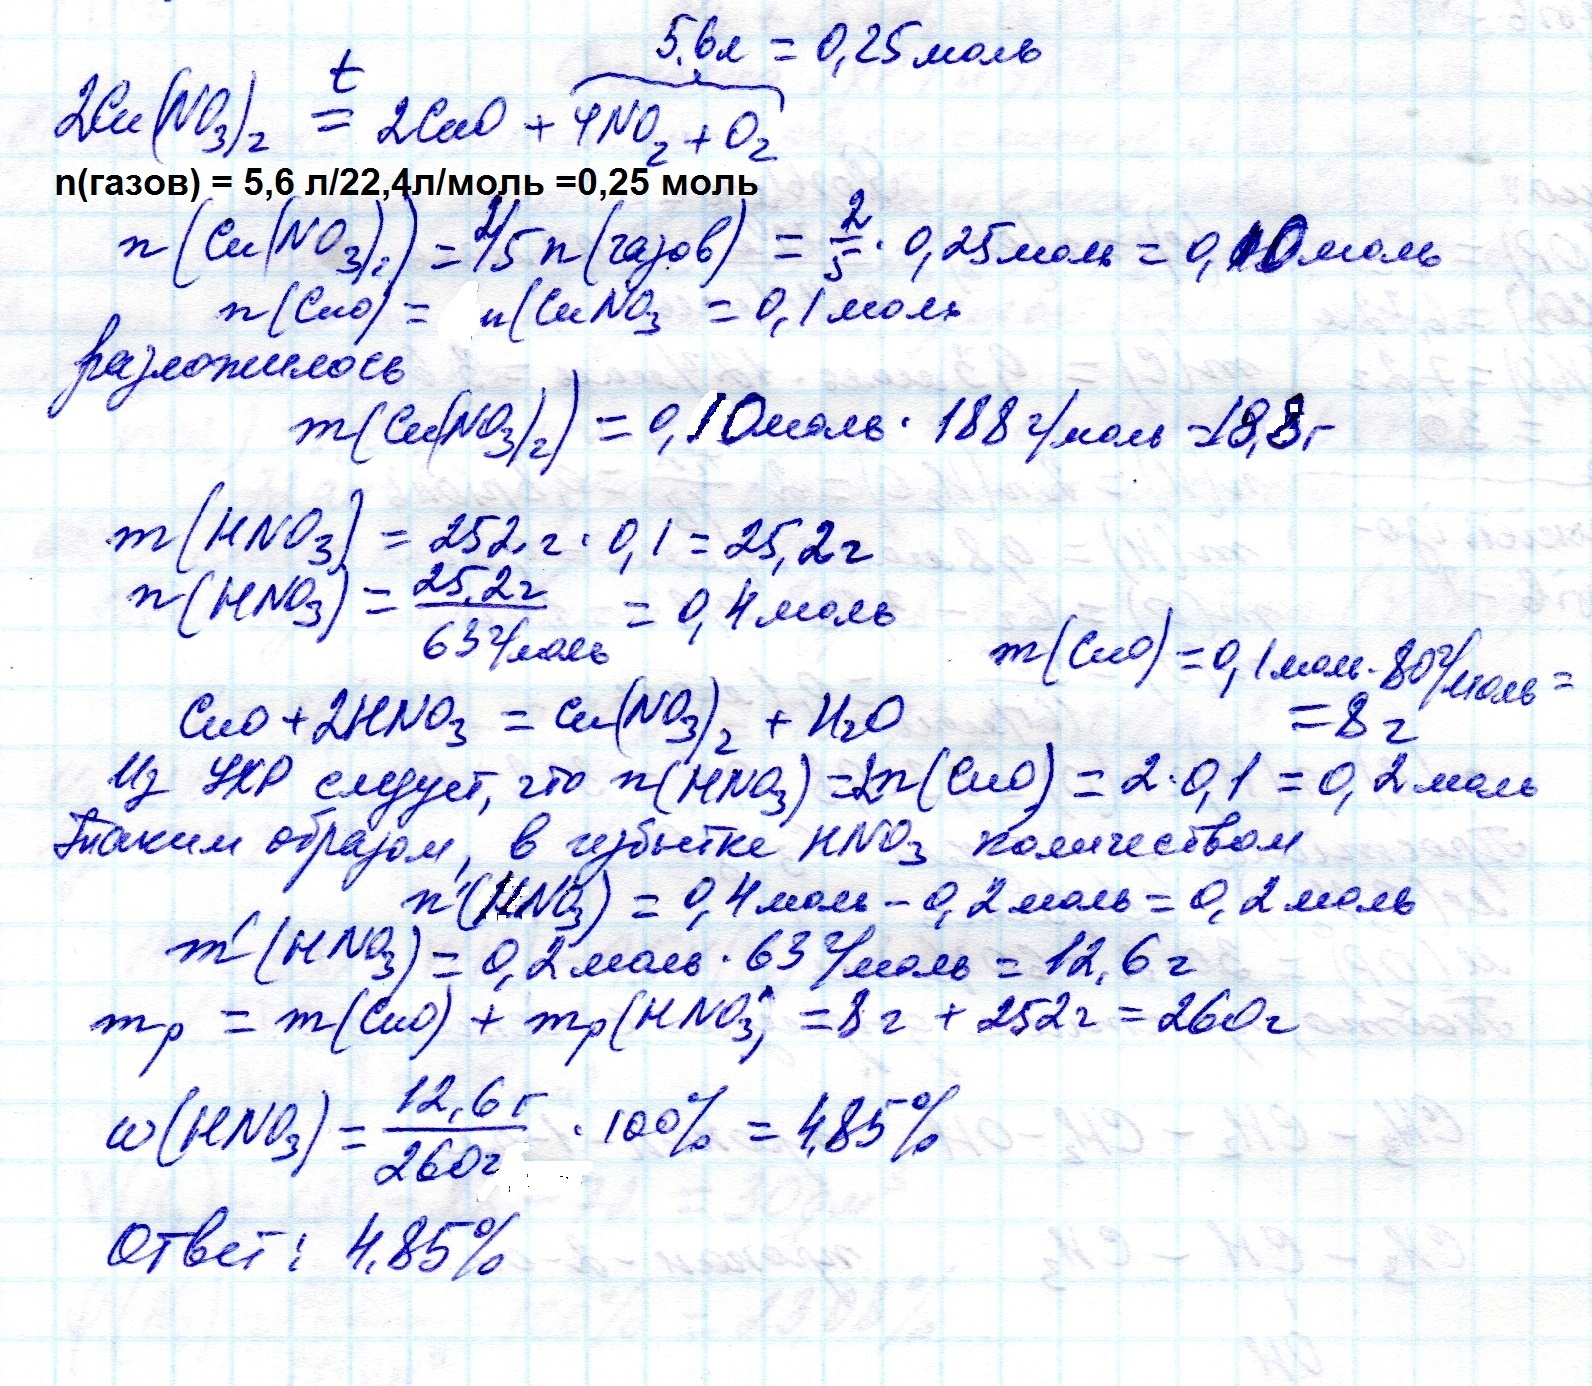 5,6л = 0,25 моль
2Cu(NO3)2 t= 2CuO + 4NO2 + O2
n(газов) = 5,6 л/22,4л/моль =0,25 моль
n(Cu(NO3)2) = 2/5 n(газов) = 2/5 · 0,25 моль = 0,10 моль
n(CuO) = n(CuNO3 = 0,1 моль
разложилось
m(Cu(NO3)2) = 0,10 моль · 188 г/моль = 18,8 г
m(HNO3) = 252 г · 0,1 = 25,2 г
n(HNO3) = 25,2 г / 63 г/моль = 0,4 моль
m(CuO) = 0,1 моль · 80 г/моль =
= 8 г
CuO + 2HNO3 = Cu(NO3)2 + H2O
Из УХР следует, что n(HNO3) = 2n(CuO) = 2 · 0,1 = 0,2 моль
Таким образом, в избытке HNO3 количеством
n'(HNO3) = 0,4 моль - 0,2 моль = 0,2 моль
m'(HNO3) = 0,2 моль · 63 г/моль = 12,6 г
mр = m(CuO) + mр(HNO3) = 8 г + 252 г = 260 г
w(HNO3) = 12,6 г / 260 г · 100% = 4,85%
Ответ: 4,85%